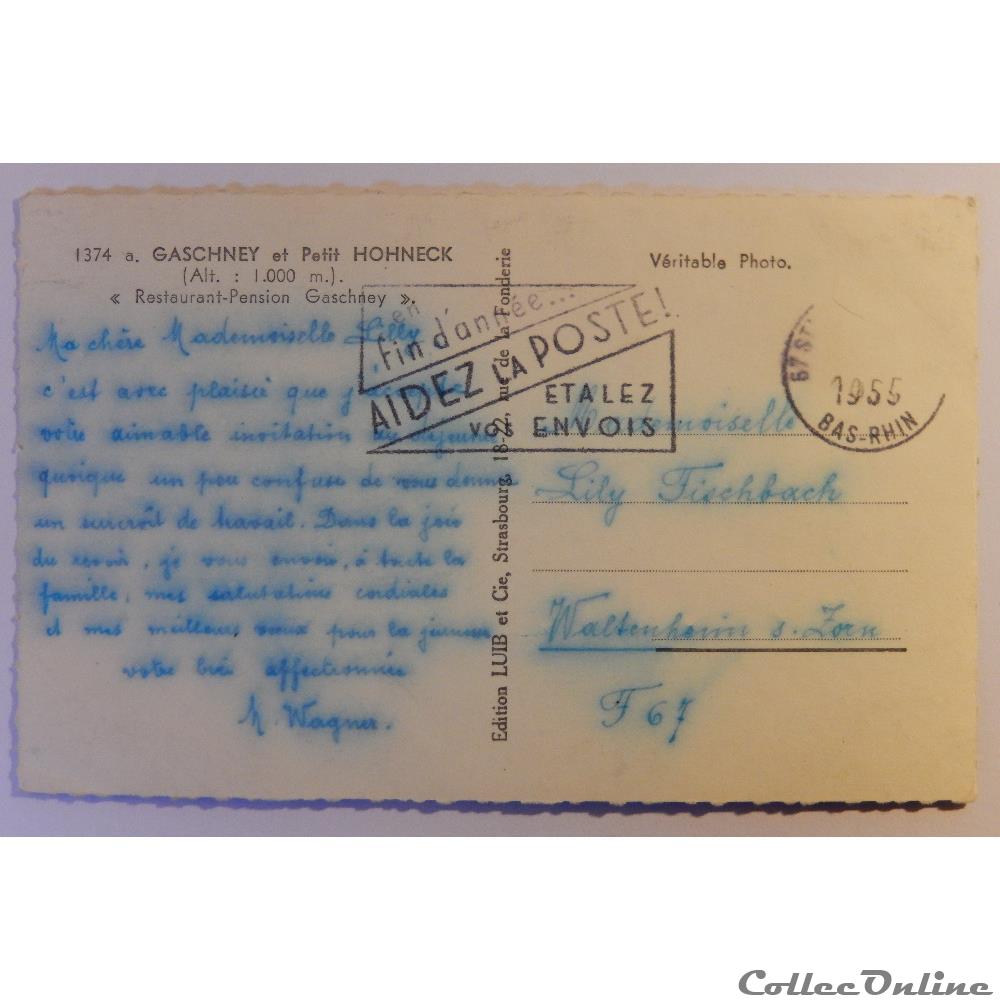 1374 a. GASCHNEY et Petit HOHNECK
(Alt. : 1.000 m.).
« Restaurant-Pension Gaschney ».
Ma chère Mademoiselle Lilly
c'est avec plaisir que j'accepte
votre aimable invitation au déjeuner
quoique un peu confuse de vous donner
un surcroît de travail. Dans la joie
du revoir, je vous envoie, à toute la
famille, mes salutations cordiales
et mes meilleurs vœux pour la jeunesse
votre bien affectionnée
Wagner.
Edition LUIB et Cie, Strasbourg, 18-22, rue de la Fonderie
Véritable Photo.
en
fin d'année...
AIDEZ LA POSTE!
ETALEZ
VOS ENVOIS
67 ST
1955
BAS-RHIN
Mademoiselle
Lily Fischbach
Waltenheim s. Zorn
F 67
CollecOnline